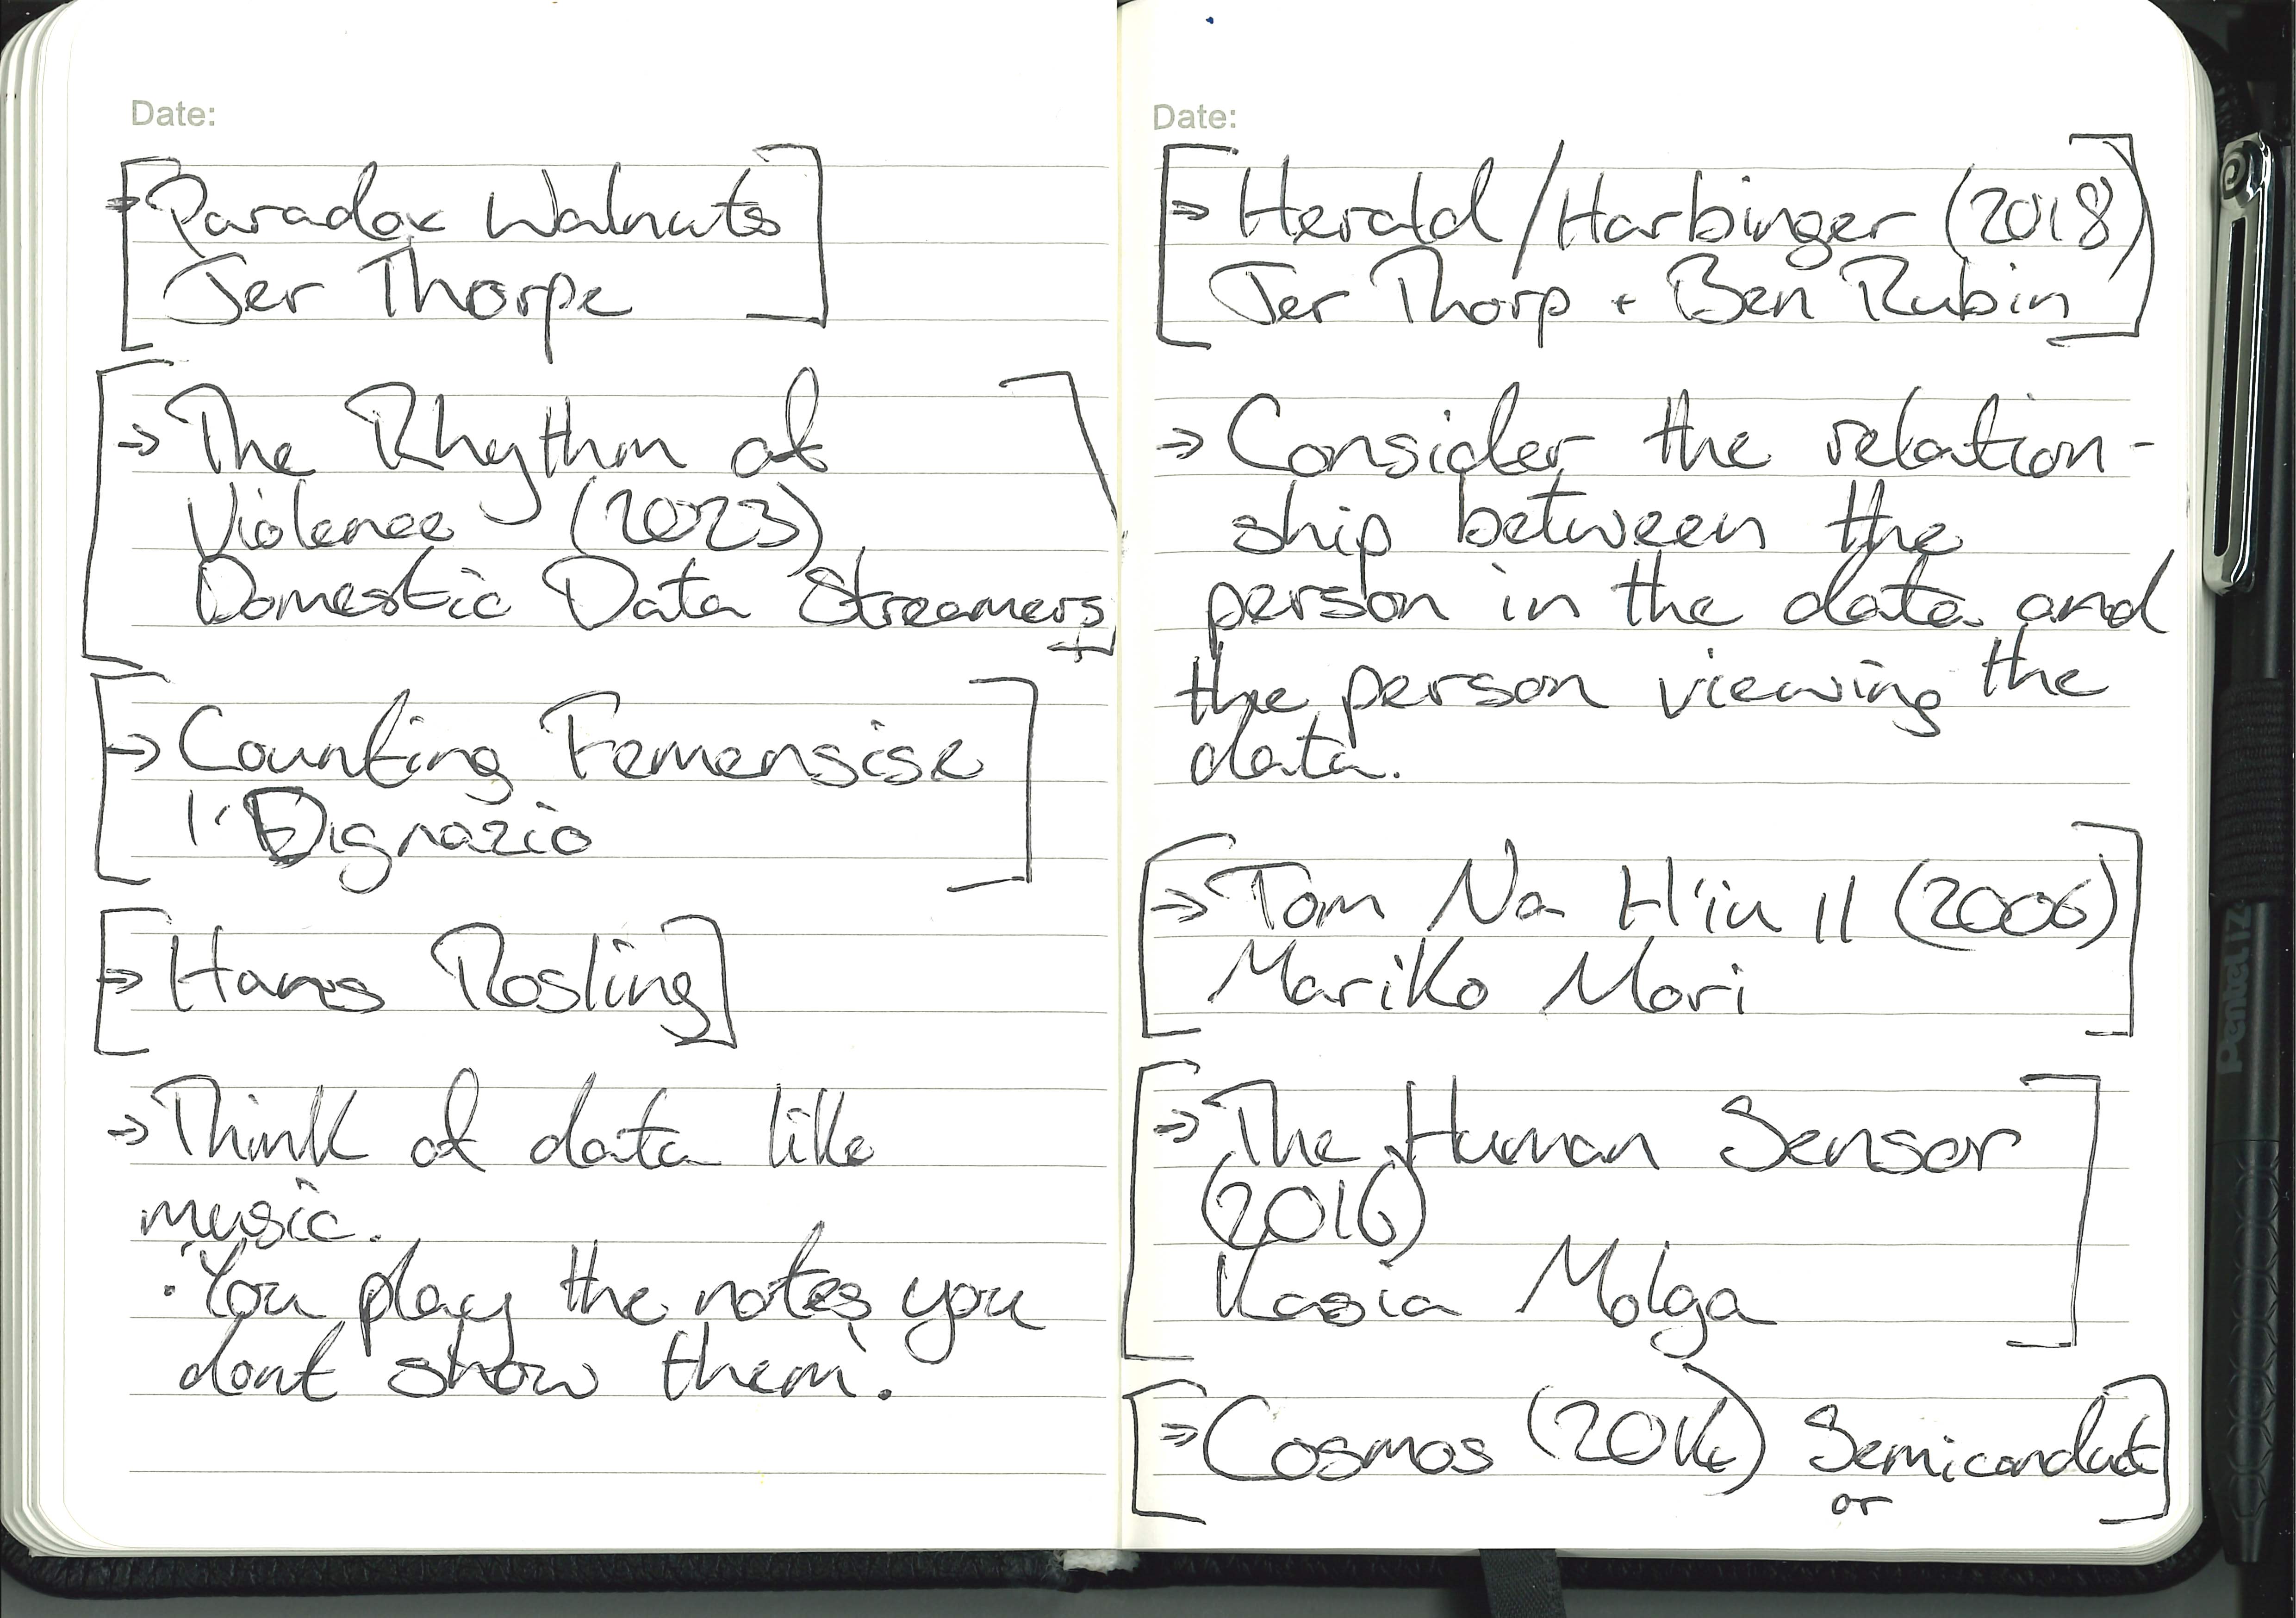 Date:
[→ Paradox Walnuts
Jer Thorpe]
[→ The Rhythm of
Violence (2023)
Domestic Data Streamers]
[→ Counting Femensise
Dignazio]
[→ Hans Rosling]
→ Think of data like
music.
· You play the notes you
dont show them.
Date:
[→ Herald/Harbinger (2018)
Jer Thorp + Ben Rubin]
→ Consider the relation-
ship between the
person in the data and
the person viewing the
data.
[→ Tom Na H'iu II (2006)
Mariko Mori]
[→ The Human Sensor
(2016)
Kasia Molga]
[→ Cosmos (2014) Semiconduct
or]
Pentel